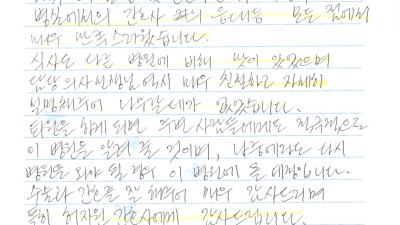 병실에서의 간호사 분의 응대등 모든 점에서
매우 만족스러웠습니다.
식사도 다른 병원에 비해 맛이 있었으며
담당의사선생님 역시 매우 친절하고 자세히
설명해주어 나무랄데가 없었습니다.
퇴원을 하게 되면 주변 사람들에게도 적극적으로
이 병원을 알려 줄 것이며, 나중에라도 다시
병원을 와야 될 경우 이 병원에 올 예정입니다.
수술과 간호를 잘 해주어 매우 감사드리며
특히 허자원 간호사에게 감사드립니다.